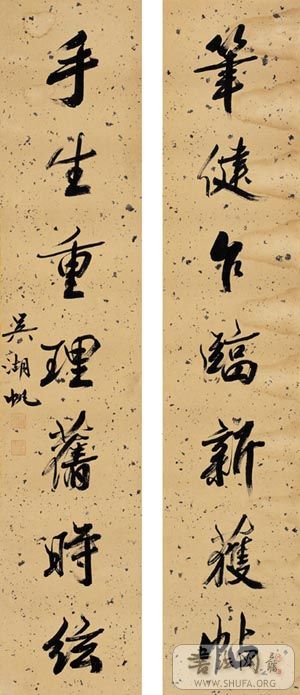 筆健乍臨新獲帖
手生重理舊時絃
吳湖帆
書法网
WWW.SHUFA.ORG